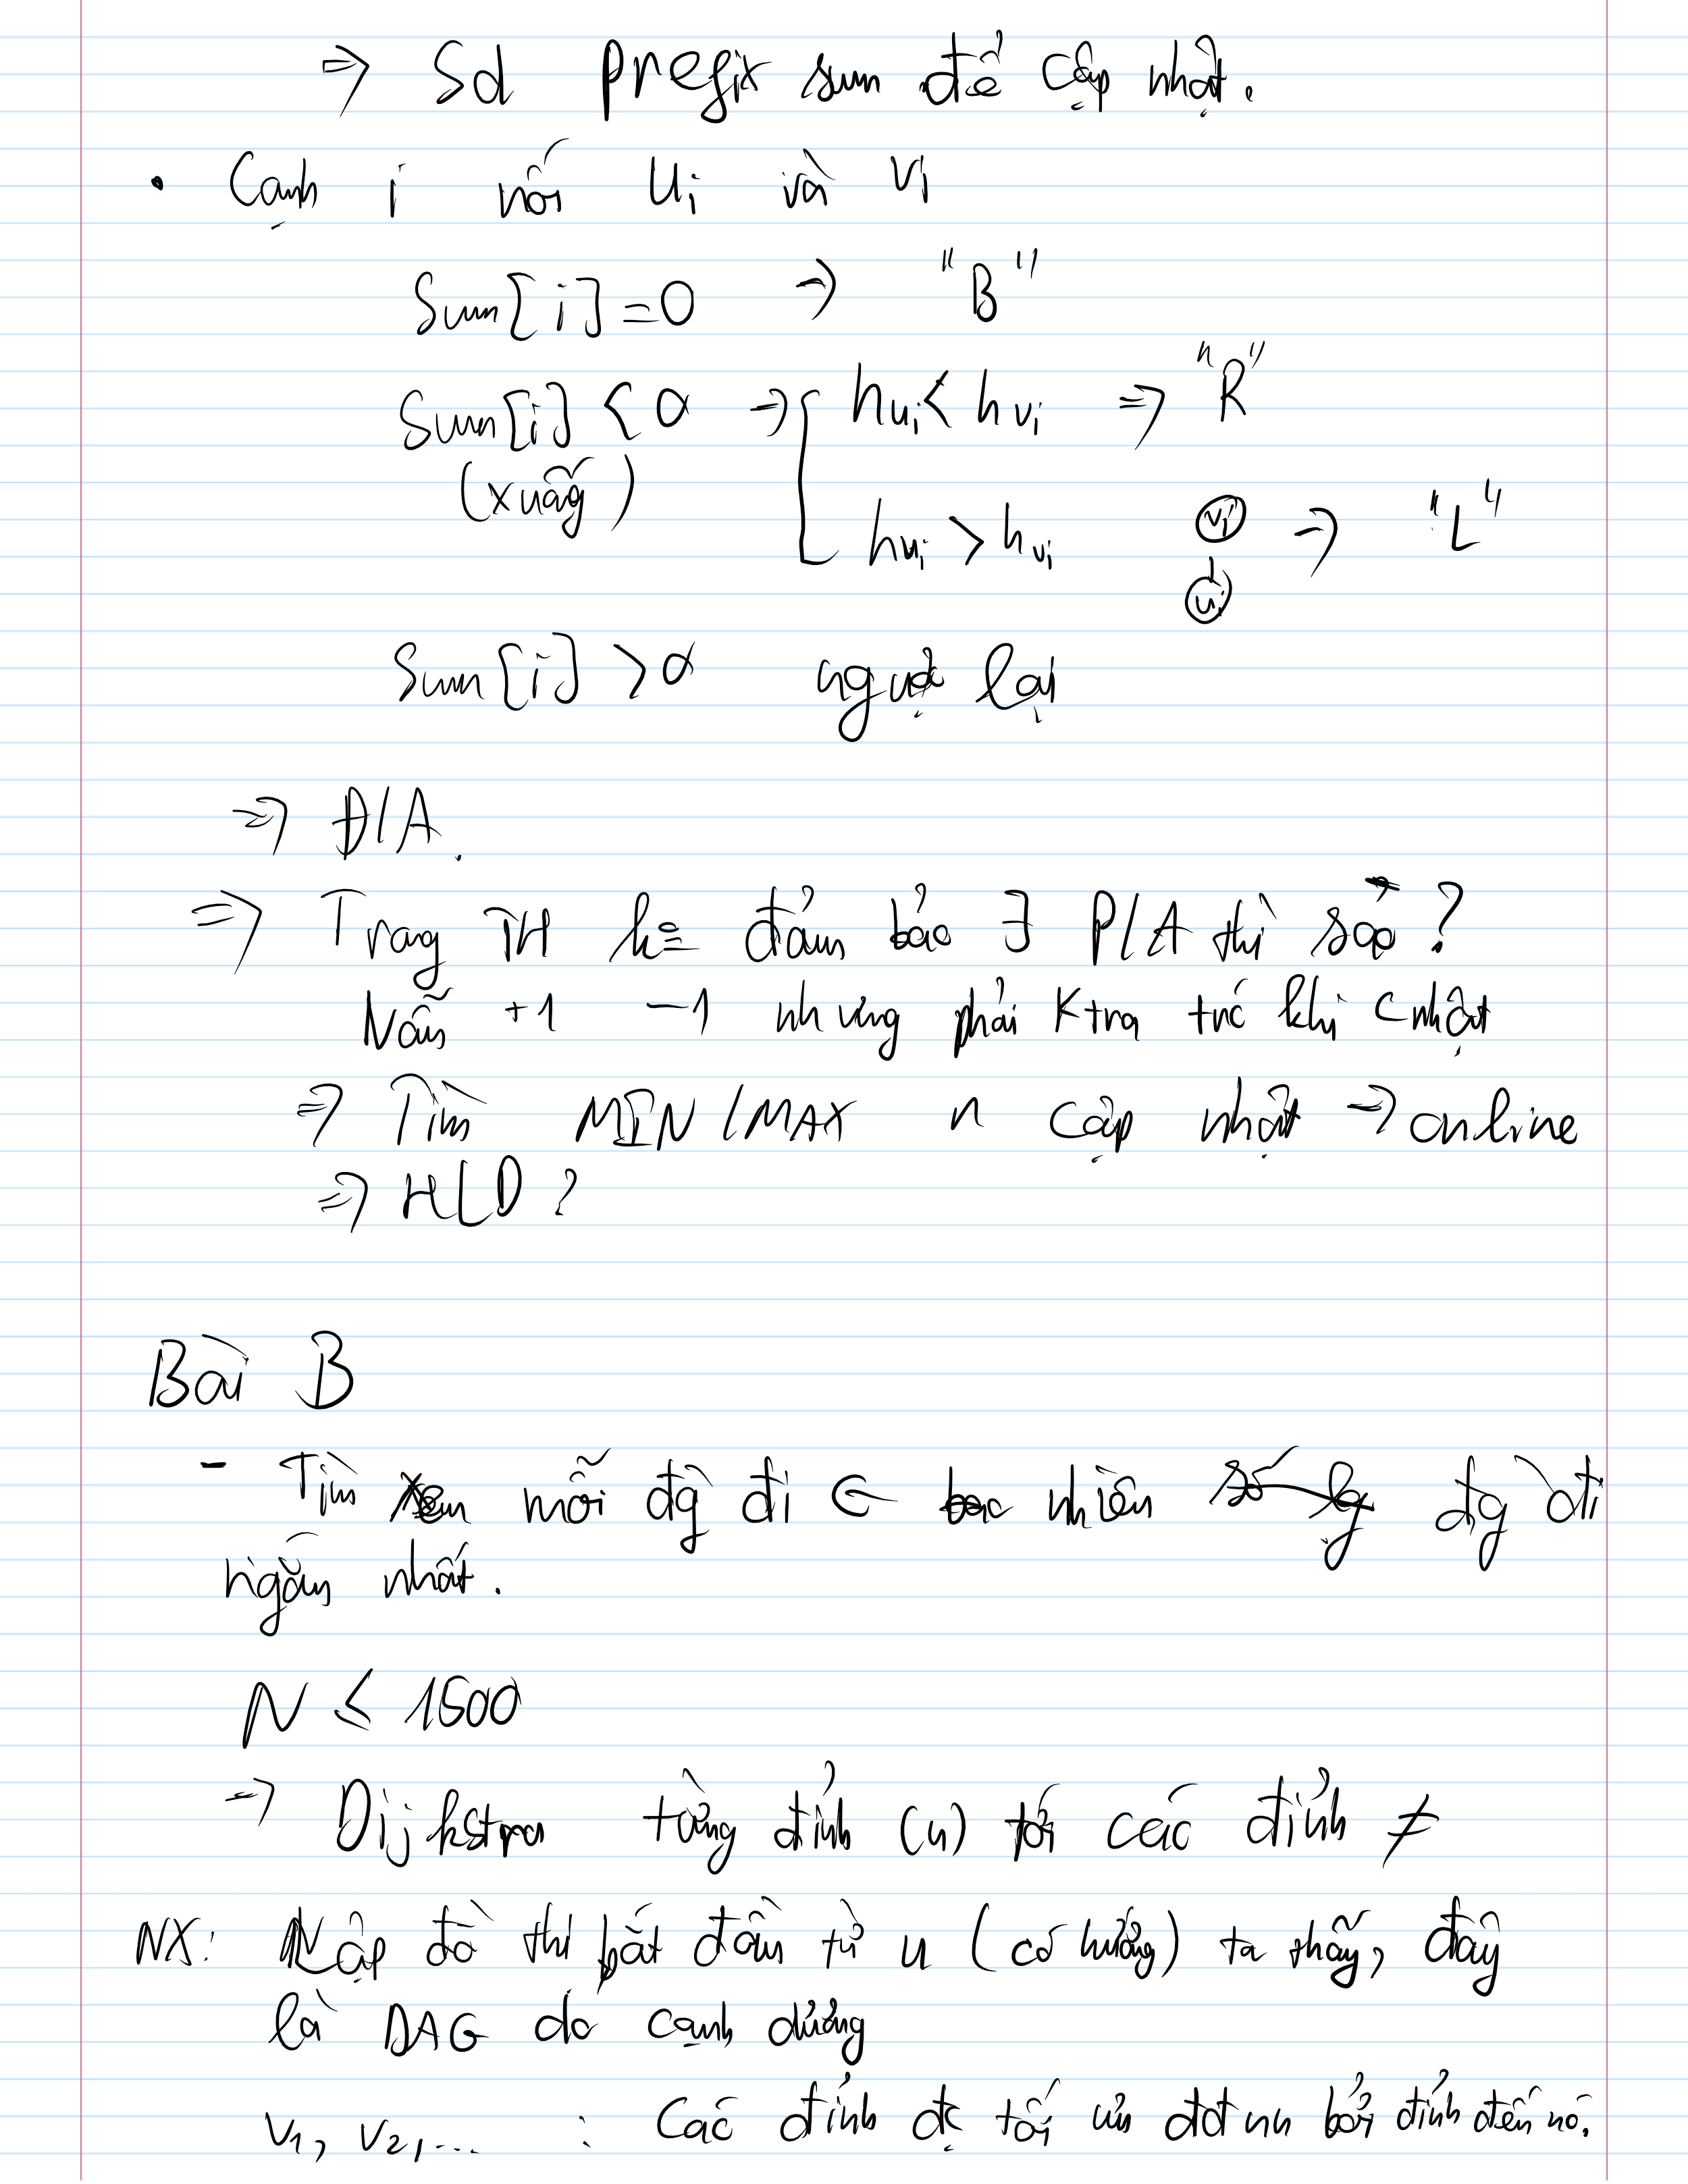 ⇒ Sd prefix sum để cập nhật.
• Cạnh i nối ui và vi
Sum[i] = 0 ⇒ "B"
Sum[i] < 0 ⇒ [ hui < hvi ⇒ "R"
(xuống)
hui > hvi vi ui ⇒ "L"
Sum[i] > 0 ngược lại
⇒ Đ/A.
⇒ Trong TH k= đảm bảo ∃ Đ/A thì sao?
Vẫn +1 -1 nhưng phải Ktra trc khi cnhật
⇒ Tìm MIN/MAX n cập nhật → online
⇒ HLD?
Bài B
- Tìm xem mỗi đg đi ∈ bao nhiên đg đi
ngắn nhất.
N ≤ 1500
⇒ Dijkstra từng đỉnh (u) tới các đỉnh ≠
NX: Lập đồ thị bắt đầu từ u (có hướng) ta thấy, đây
là DAG do cạnh dương
v1, v2, ... : Các đỉnh đc tối ưu bởi đỉnh đến nó.